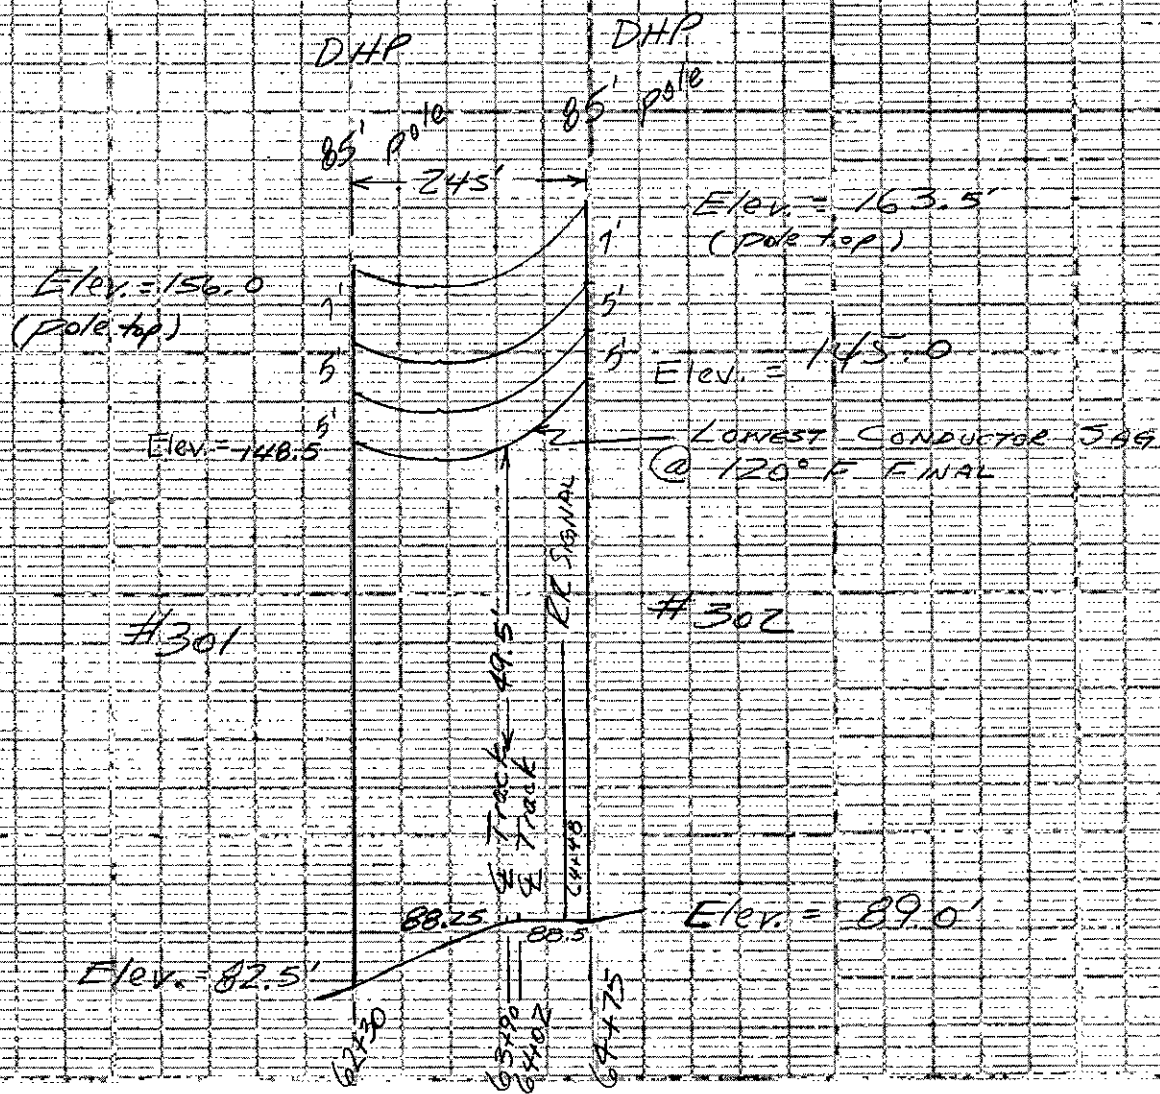 DHP
DHP
85' pole
85' pole
245'
Elev. = 163.5'
(pole top)
7'
Elev. = 156.0
(pole top)
7'
5'
5'
5'
5'
Elev. = 145.0
Elev. = 148.5
LOWEST CONDUCTOR SAG
@ 120° F FINAL
RR SIGNAL
49.5'
#301
#302
℄ Track
℄ Track
64+48
88.25
88.5
Elev. = 89.0'
Elev. = 82.5'
62+30
63+90
64+02
64+75